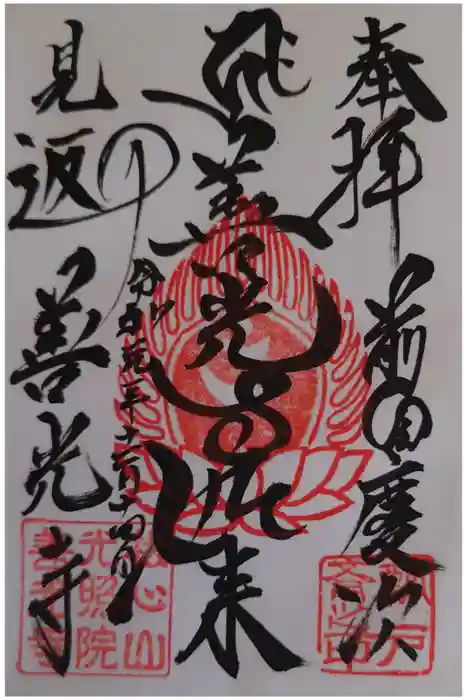 奉拝
前田慶次
善光
如来
令和元年
十四日
見返り
善光寺
心山
光照院
善光寺